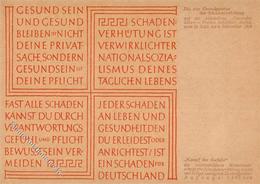 GESUND SEIN
UND GESUND
BLEIBEN IST NICHT
DEINE PRIVAT-
SACHE, SONDERN
GESUND SEIN IST
DEINE PFLICHT
SCHADEN-
VERHÜTUNG IST
VERWIRKLICHTER
NATIONALSOZIA-
LISMUS DEINES
TÄGLICHEN LEBENS
FAST ALLE SCHADEN
KANNST DU DURCH
VERANTWORTUNGS-
GEFÜHL UND PFLICHT
BEWUSSTSEIN VER-
MEIDEN
JEDER SCHADEN
AN LEBEN UND
GESUNDHEIT DEN
DU ERLEIDEST ODER
ANRICHTEST / IST
EIN SCHADEN FÜR
DEUTSCHLAND
"Kampf der Gefahr"